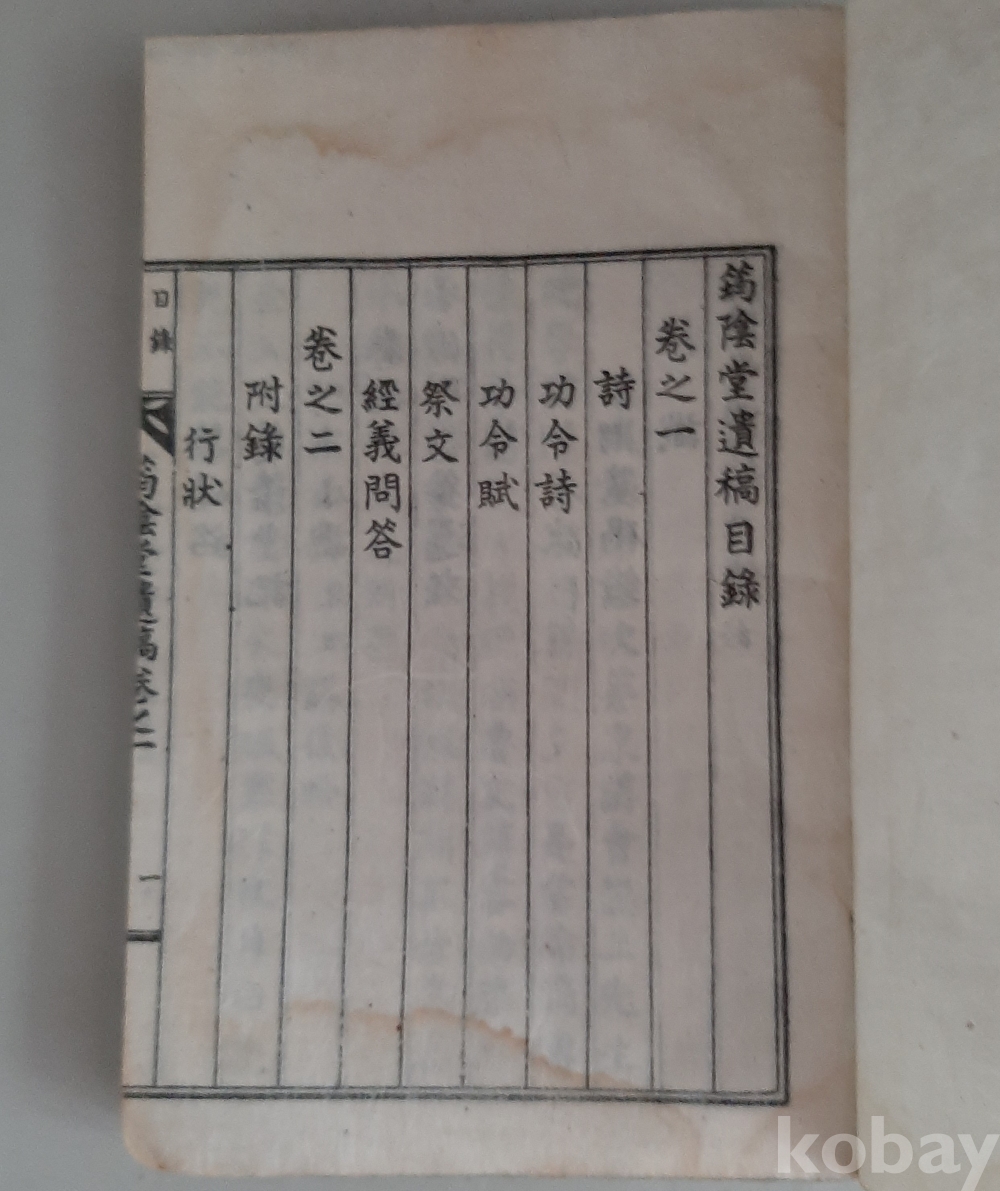 筠陰堂遺稿目錄
卷之一
詩
功令詩
功令賦
祭文
經義問答
卷之二
附錄
行狀
目錄
筠陰堂遺稿卷之二
一
kobay